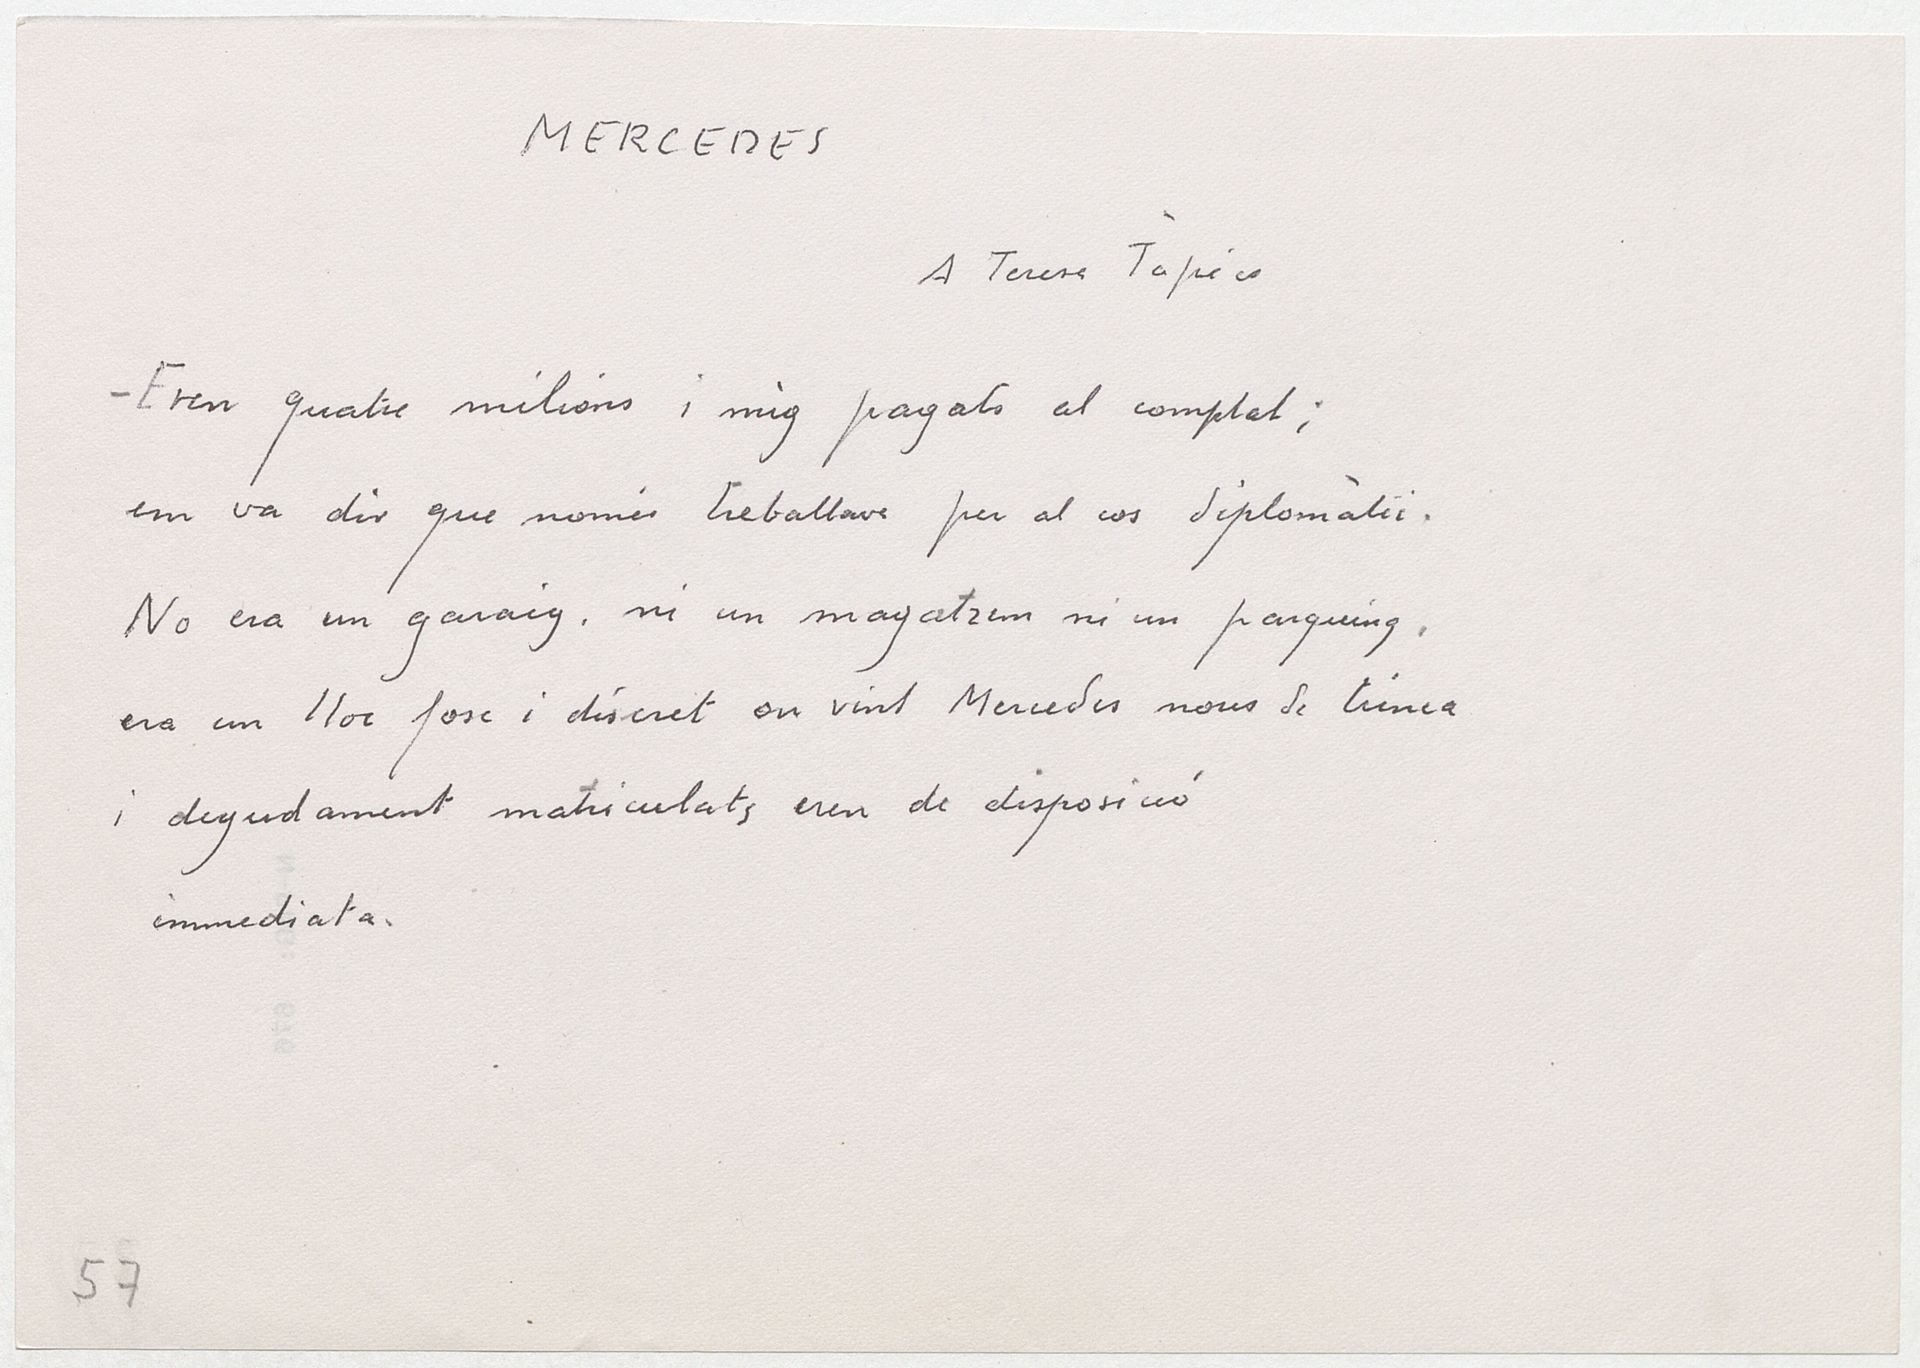 MERCEDES
A Teresa Tàpies
-Eren quatre milions i mig pagats al comptat;
em va dir que només treballava per al cos diplomàtic.
No era un garaig, ni un magatzem ni un parquing,
era un lloc fosc i discret on vint Mercedes nous de trinca
i degudament matriculats eren de disposició
immediata.
57